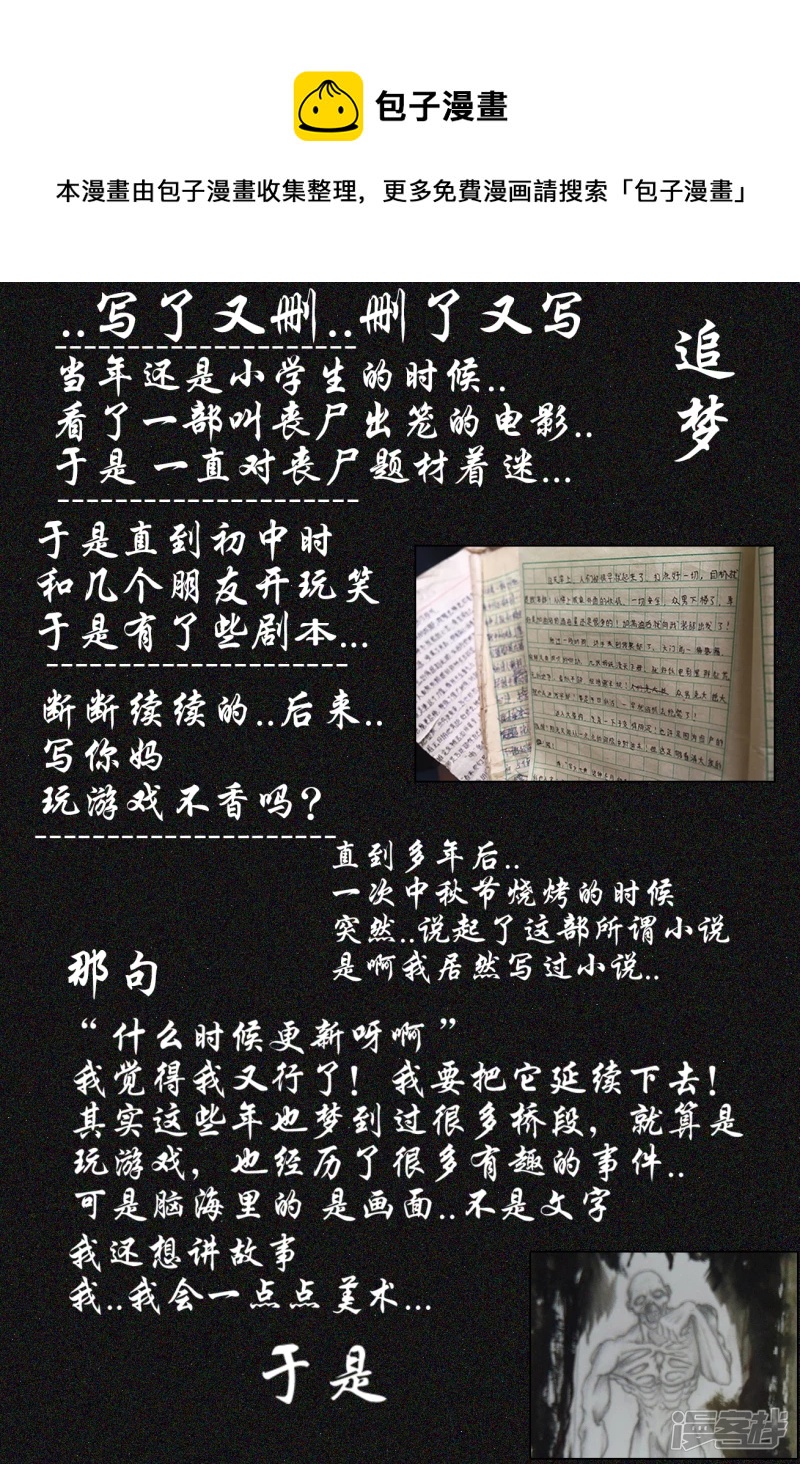 包子漫畫
本漫畫由包子漫畫收集整理，更多免費漫画請搜索「包子漫畫」
..写了又删..删了又写
追梦
当年还是小学生的时候..
看了一部叫丧尸出笼的电影..
于是一直对丧尸题材着迷...
于是直到初中时
和几个朋友开玩笑
于是有了些剧本...
断断续续的..后来..
写你妈
玩游戏不香吗？
直到多年后..
一次中秋节烧烤的时候
突然..说起了这部所谓小说
是啊我居然写过小说..
那句
“什么时候更新呀啊”
我觉得我又行了！我要把它延续下去！
其实这些年也梦到过很多桥段，就算是
玩游戏，也经历了很多有趣的事件..
可是脑海里的 是画面..不是文字
我还想讲故事
我..我会一点点美术...
于是
漫客栈